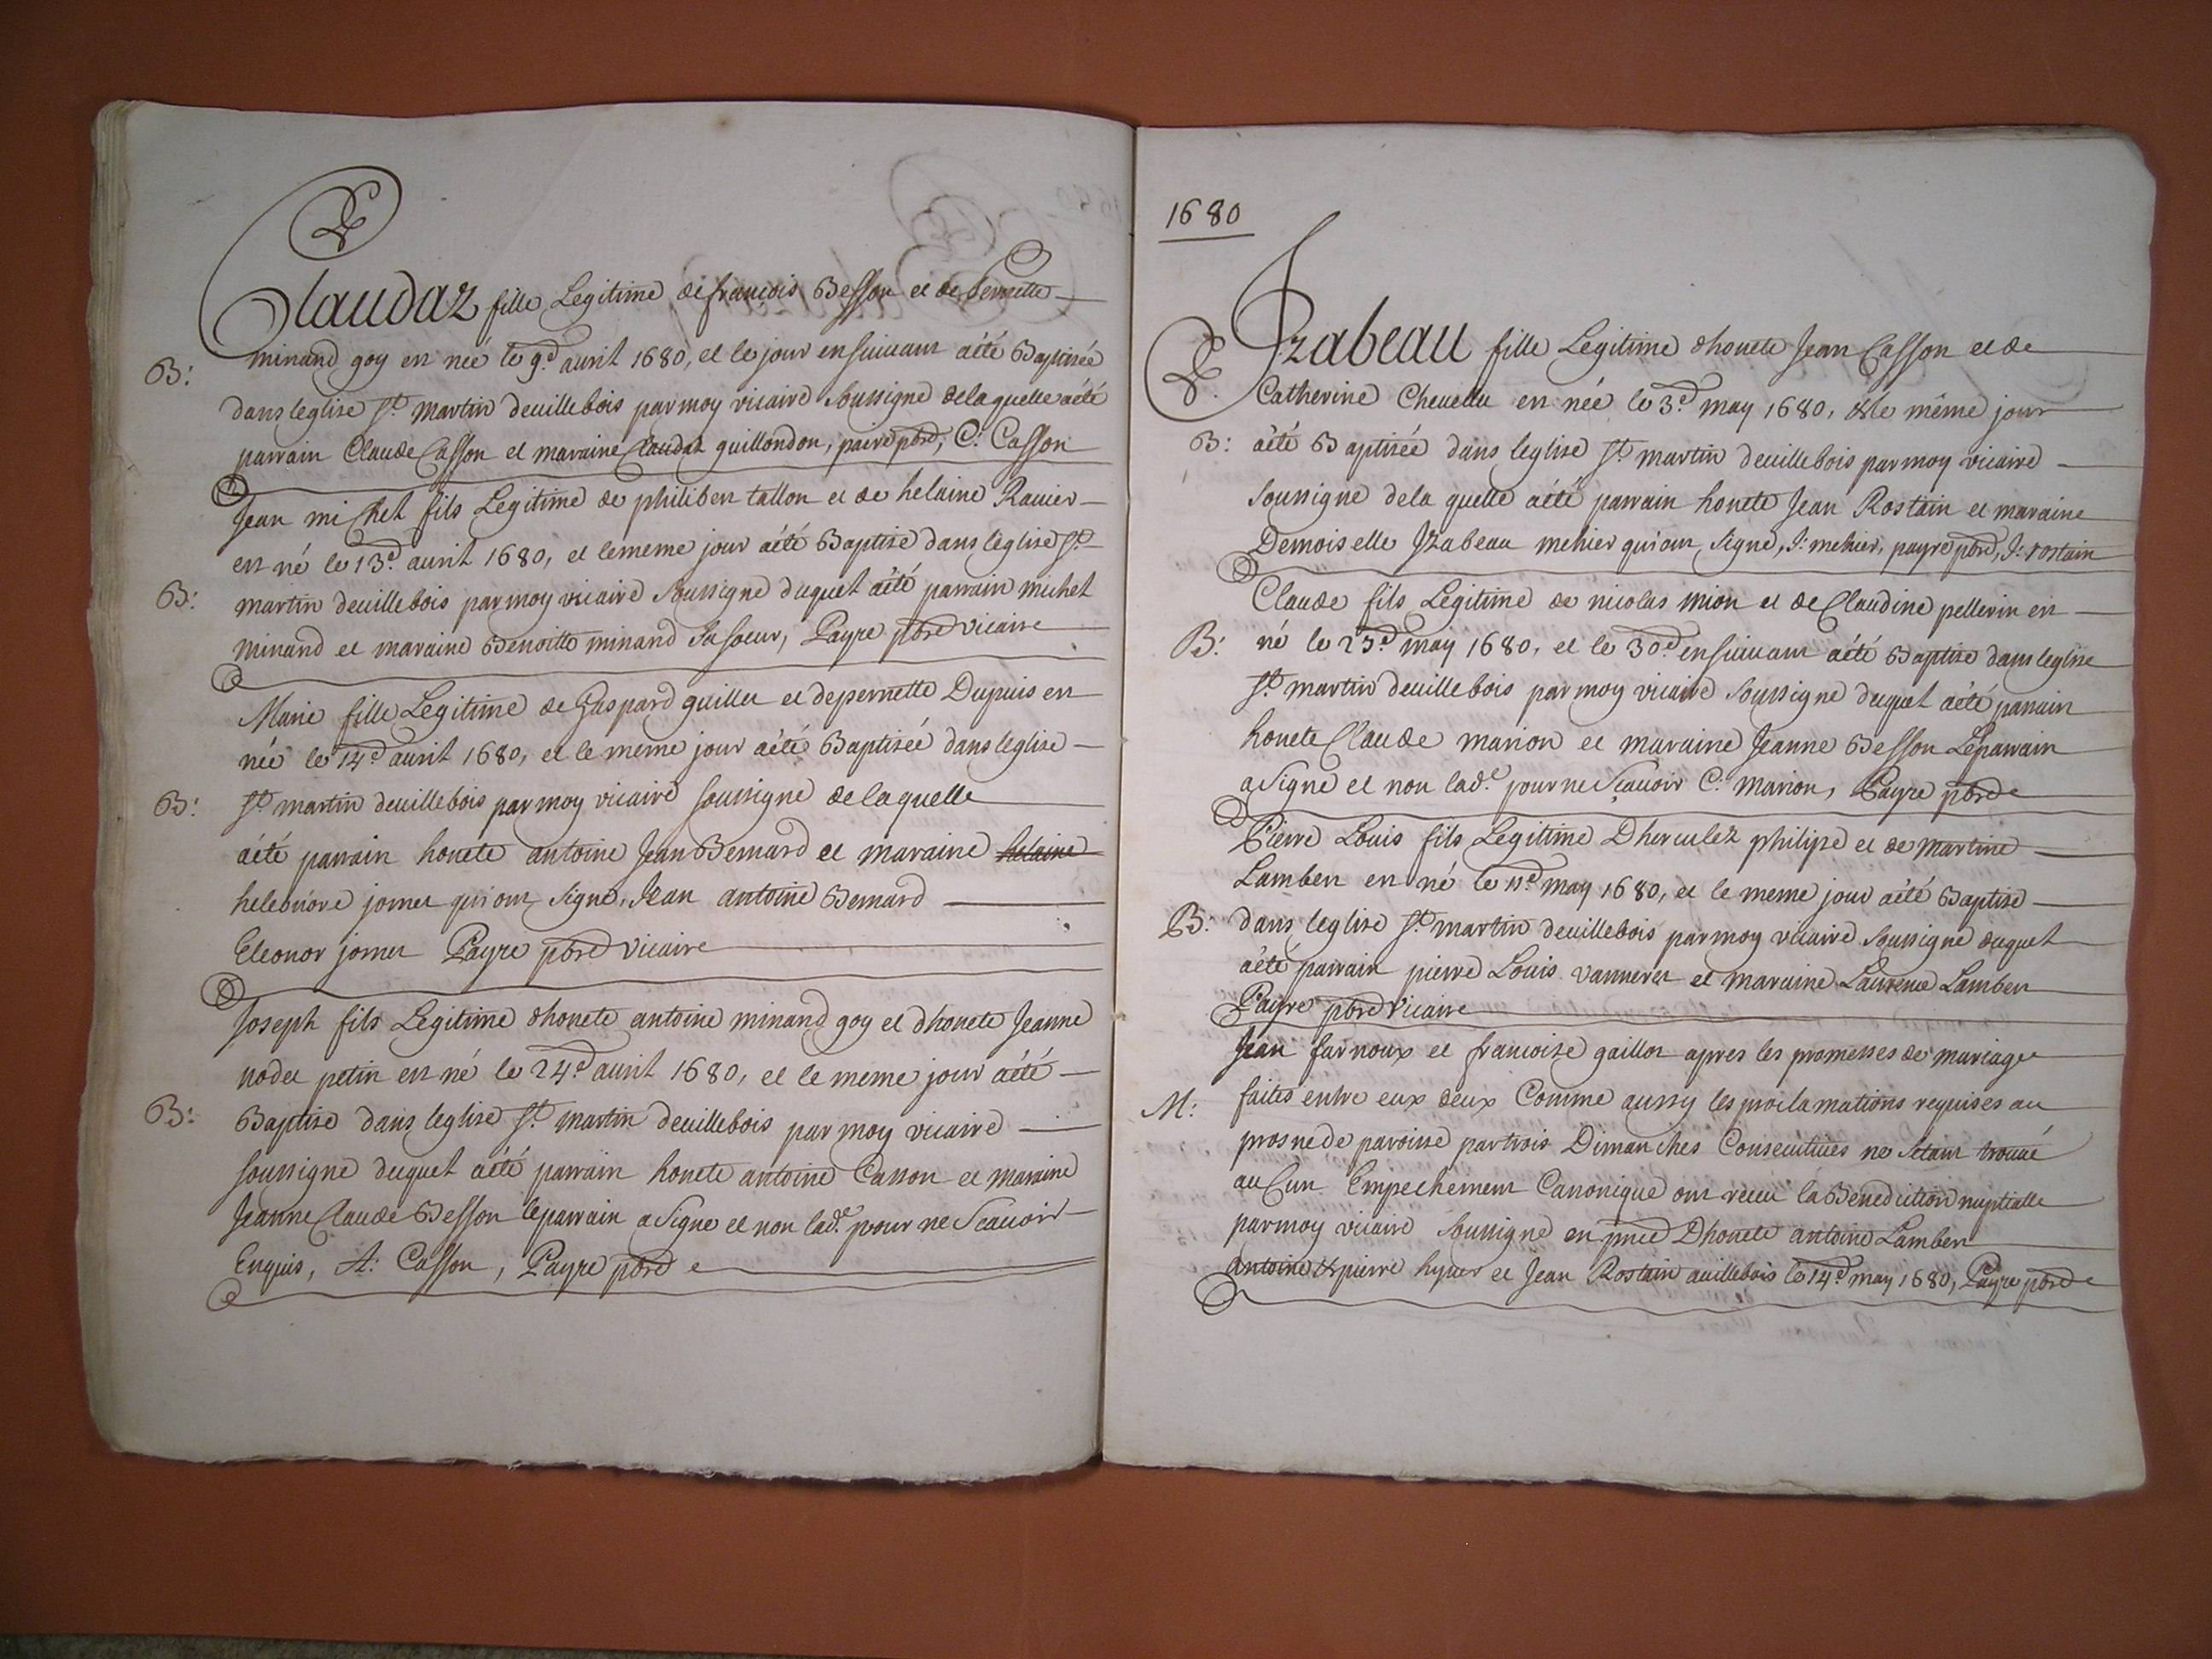 Claudaz fille Legitime de francois Besson et de Pernette
B: minand goy est neé le 9.d avril 1680, et le jour ensuiuant aété Baptisée
dans leglise St. martin deuillebois par moy vicaire soussigné delaquelle aété
parrain Claude Casson et maraine Claudaz guillondon, paire pbre, C: Casson
Jean michel fils Legitime de philibert tallon et de helaine Rauier
est né le 13.d auril 1680, et lememe jour aété Baptisé dans leglise St.
B: martin deuillebois par moy vicaire soussigné duquel aété parrain michel
minand et maraine Benoitte minand sa soeur, Payre pbre vicaire
Marie fille Legitime de Gaspard guillet et depernette Dupuis est
née le 14.d auril 1680, et le meme jour aété Baptiseé dans leglise
B: St. martin deuillebois par moy vicaire soussigné de laquelle
aété parrain honete antoine Jean Bernard et maraine helaine
heleonore jornet qui ont signé, Jean antoine Bernard
Eleonor jornet Payre pbre vicaire
Joseph fils Legitime dhonete antoine minand goy et dhonete Jeanne
nodet petin est né le 24.d auril 1680, et le meme jour aété
B: Baptisé dans leglise St. martin deuillebois par moy vicaire
soussigné duquel aété parrain honete antoine Casson et maraine
Jeanne Claude Besson leparrain a signé et non lad.e pour ne Scauoir
Enquis, A: Casson, Payre pbre
1680
Izabeau fille Legitime dhonete Jean Casson et de
Catherine est née le 3.d may 1680, & le même jour
B: aété Baptisée dans leglise St. martin deuillebois par moy vicaire
soussigné dela quelle aété parrain honete Jean Rostain et maraine
Demoiselle Izabeau mehier qui ont signé, I: mehier, payre pbre, J: rostain
Claude fils Legitime de nicolas mion et de Claudine pellerin est
B: né le may 1680, et le 30.d ensuiuant aété Baptisé dans leglise
St. martin deuillebois par moy vicaire soussigné duquel aété parrain
honete Claude marion et maraine Jeanne Besson Leparrain
a signé et non lad.e pour ne Scauoir C: marion, Payre pbre
Pierre Louis fils Legitime Dherculez philipe et de martine
Lambert est né le 11.d may 1680, et le meme jour aété Baptisé
B: dans leglise St. martin deuillebois par moy vicaire soussigné duquel
aété parrain pierre Louis et maraine Laurence Lambert
Payre pbre vicaire
Jean farnoux et francoise gaillot apres les promesses de mariage
M: faites entre eux deux Comme aussy les proclamations requises au
prosne de paroisse par trois Dimanches Consecutiues ne setant trouué
auCun Empechement Canonique ont receu la Benediction nuptialle
par moy vicaire soussigné en pnce Dhonete antoine Lambert
antoine & pierre et Jean Rostain auillebois le 14.d may 1680, Payre pbre